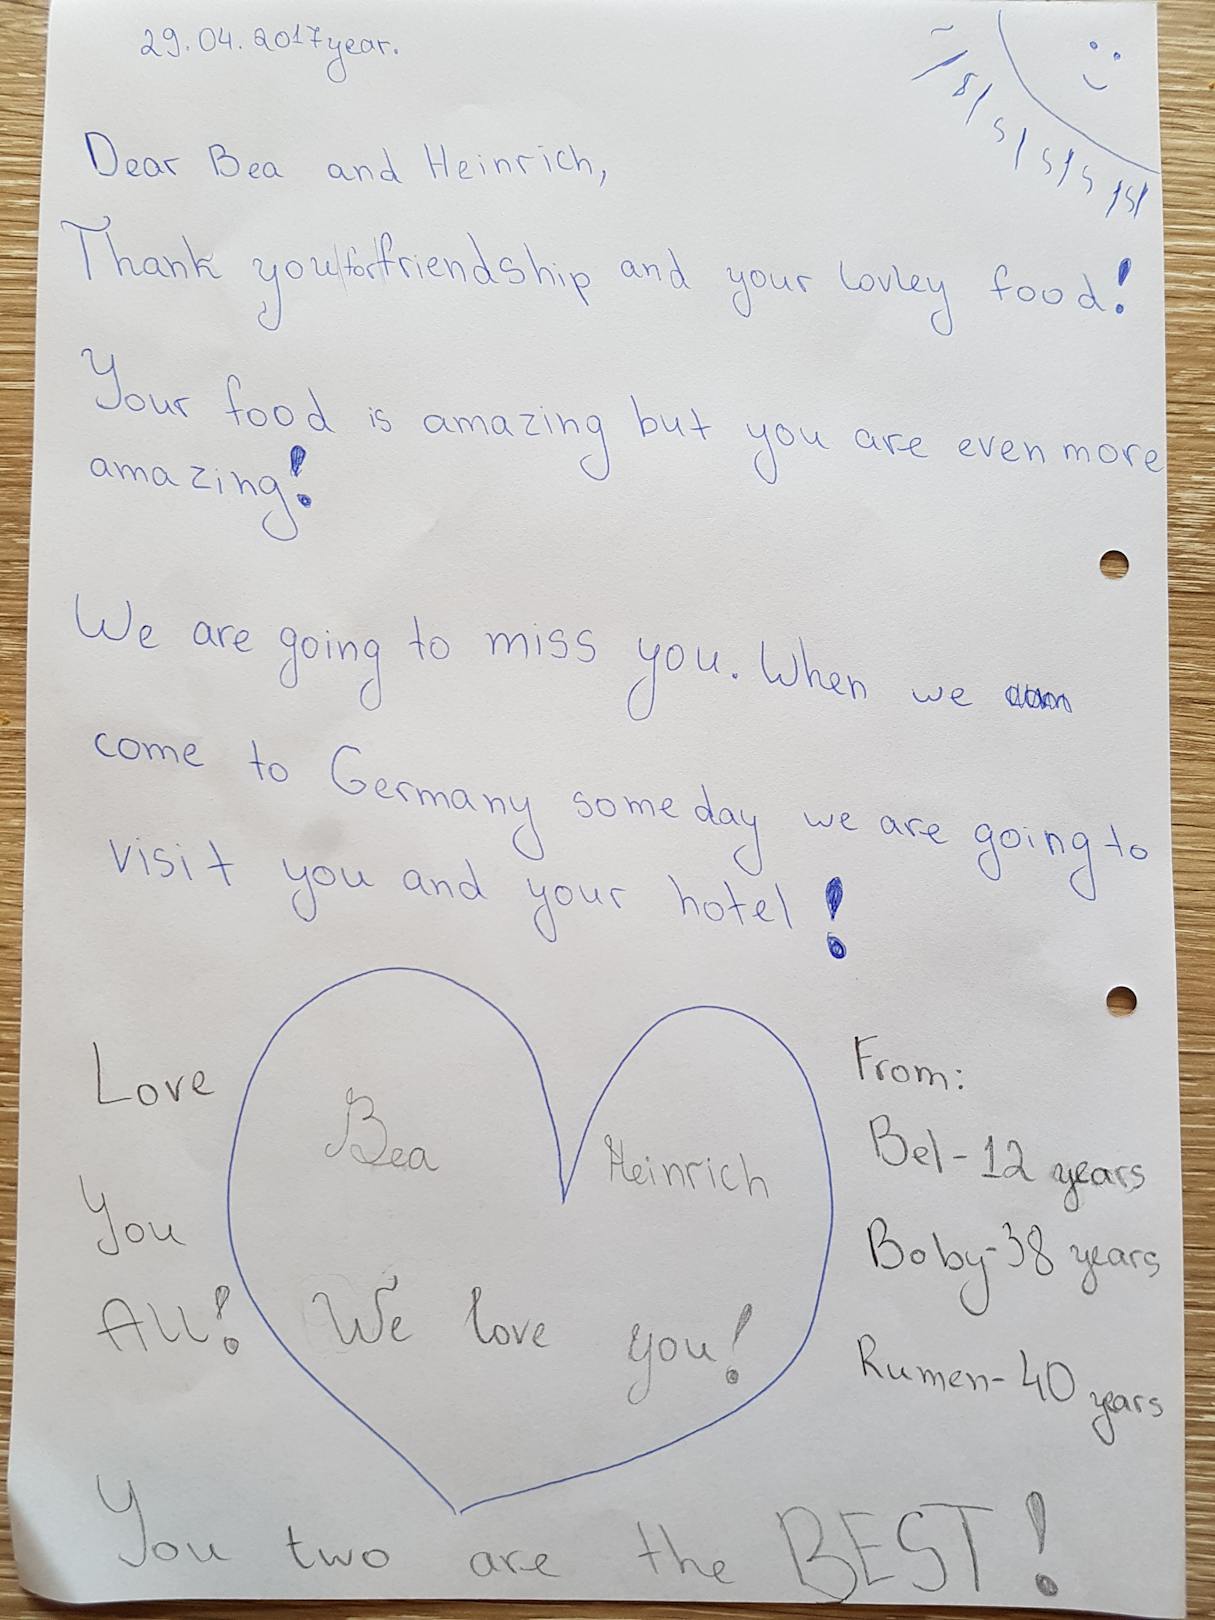 29.04.2017year.
Dear Bea and Heinrich,
Thank you for friendship and your lovley food!
Your food is amazing but you are even more
amazing!
We are going to miss you. When we
come to Germany someday we are going to
visit you and your hotel!
Love
You
All!
Bea
Heinrich
We love you!
From:
Bel-12 years
Boby-38 years
Rumen-40 years
You two are the BEST!